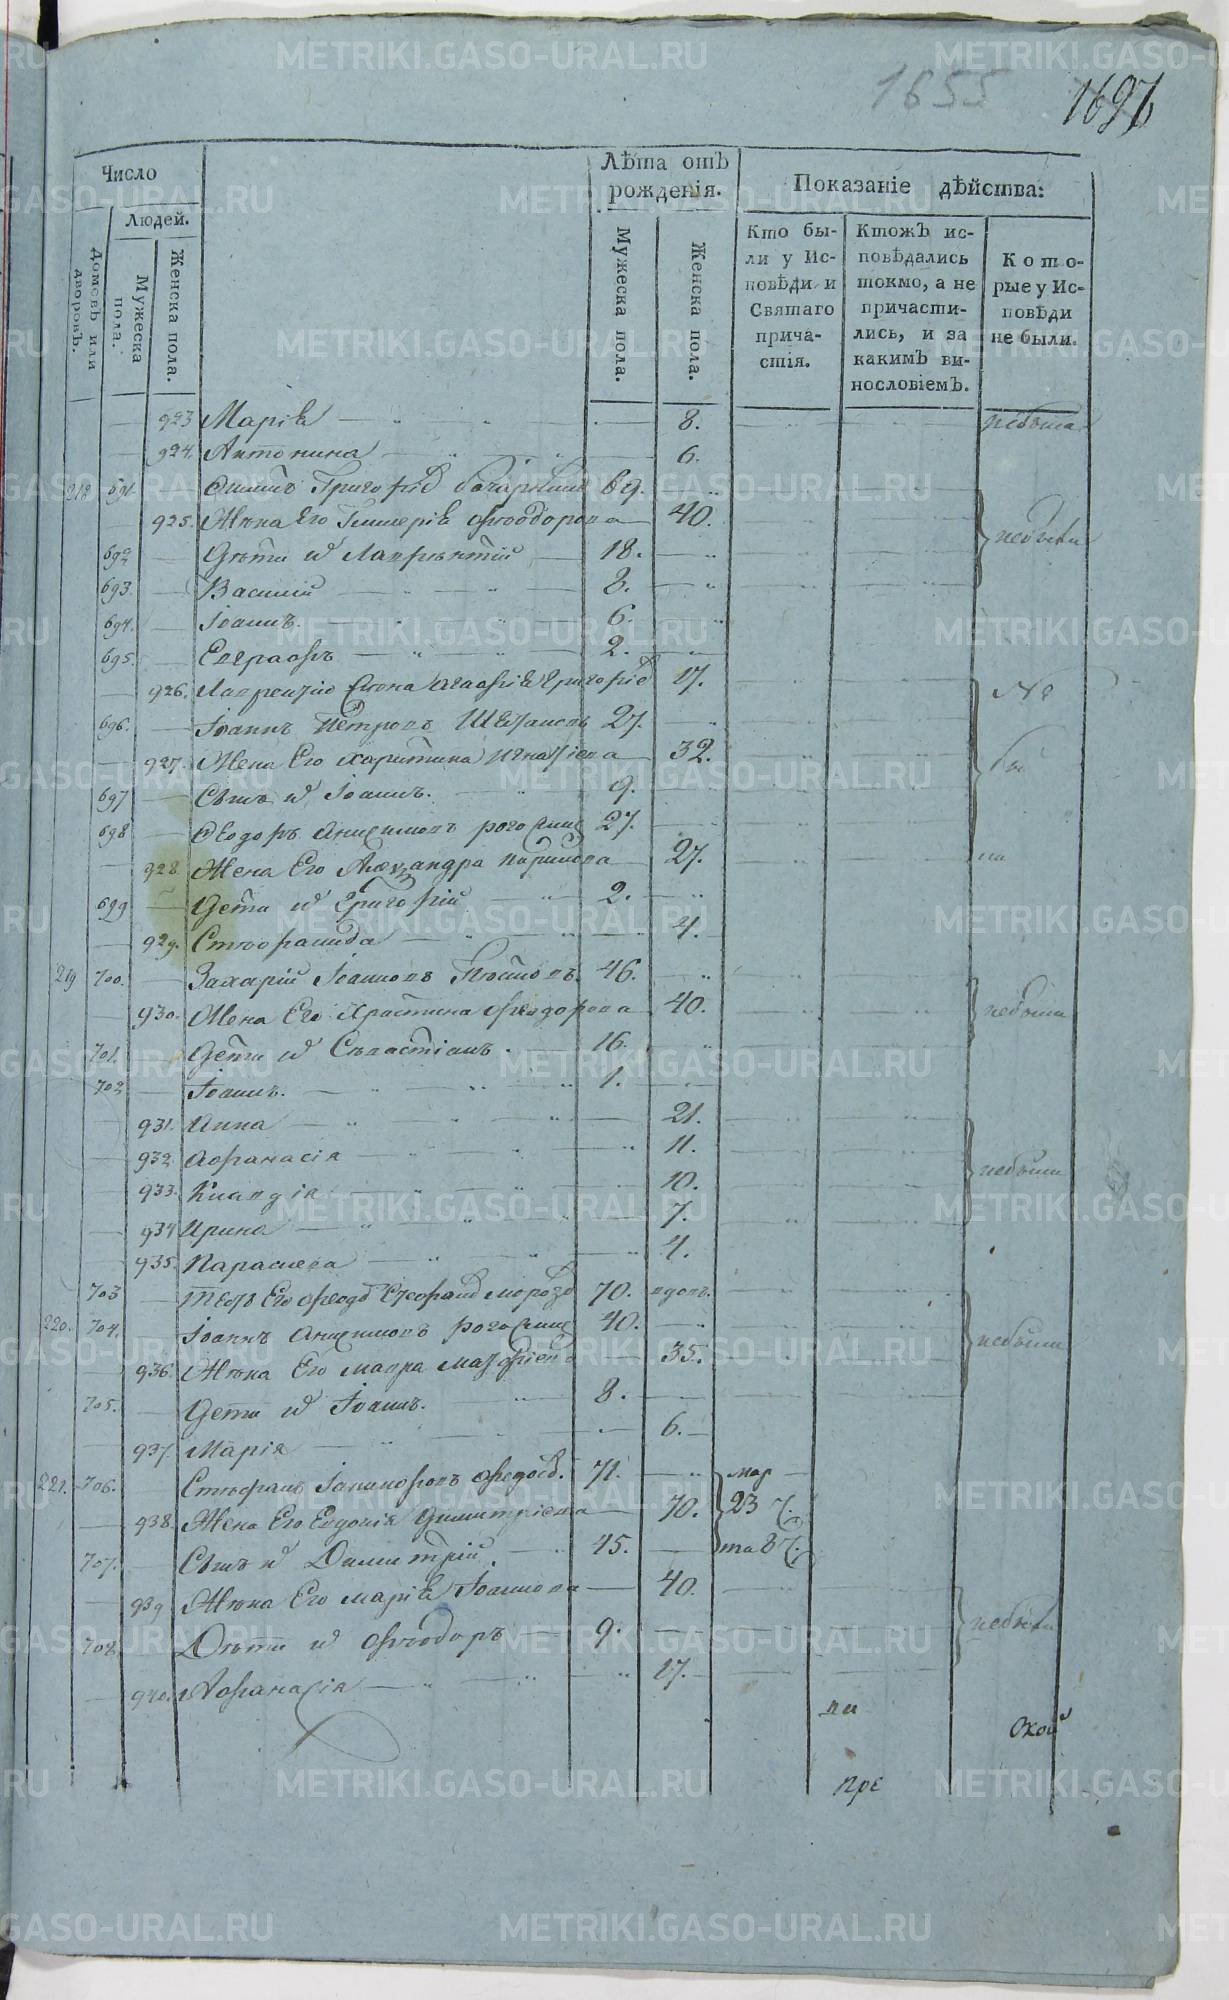 1655 1697
Число
Лѣта отъ рожденія.
Показаніе дѣйства:
Людей.
Домовъ или дворовъ.
Мужеска пола.
Женска пола.
Мужеска пола.
Женска пола.
Кто были у Исповѣди и Святаго причастія.
Ктожъ исповѣдались токмо, а не причастились, и за какимъ винословіемъ.
Которые у Исповѣди не были.
923 Марія 8. небыла
924. Антонина 6.
218 691. Григорі 69.
925. Жѣна Его Ѳѣодорова 40. небыли
692 Дѣти и҃ Лаврѣнтій 18.
693. Василій 8.
694. Іоаннъ. 6.
695. Евграфъ 2.
926. Лаврентію Жена Агафія Григорі 17. Не
696. Іоаннъ Петровъ 27.
927. Жена Его Харитина Игнатіева 32. бы
697 Сынъ и҃ Іоаннъ. 9.
698 Ѳеодоръ Анисимовъ 27.
928. Жена Его Александра 27. ли
699 Дети и҃ Григорій 2.
929. Стефанида 4.
219 700. Захарій Іоанновъ 46.
930. Жена Его Христина Ѳеодорова 40. небыли
701. Дети и҃ Севастіанъ. 16.
702 Іоаннъ. 1.
931. Анна 21.
932. Афанасія 11.
933. Клавдія 10. небыли
934 Ирина 7.
935. Параскева 4.
703 Его 70. вдовъ.
220. 704. Іоаннъ Анисимовъ 40. небыли
936. Жѣна Его Мавра 35.
705. Дети и҃ Іоаннъ. 8.
937. Марія 6.
221. 706. Стефанъ 71. мар
938. Жена Его Евдокія Димитріева 70. 23
707. Сынъ и҃ Димитрій. 45.
939 Жѣна Его Марія Іоаннова 40.
708. Дѣти и҃ Ѳѣодоръ 9. небыли
940. Афанасія 17.
ли
пре
METRIKI.GASO-URAL.RU